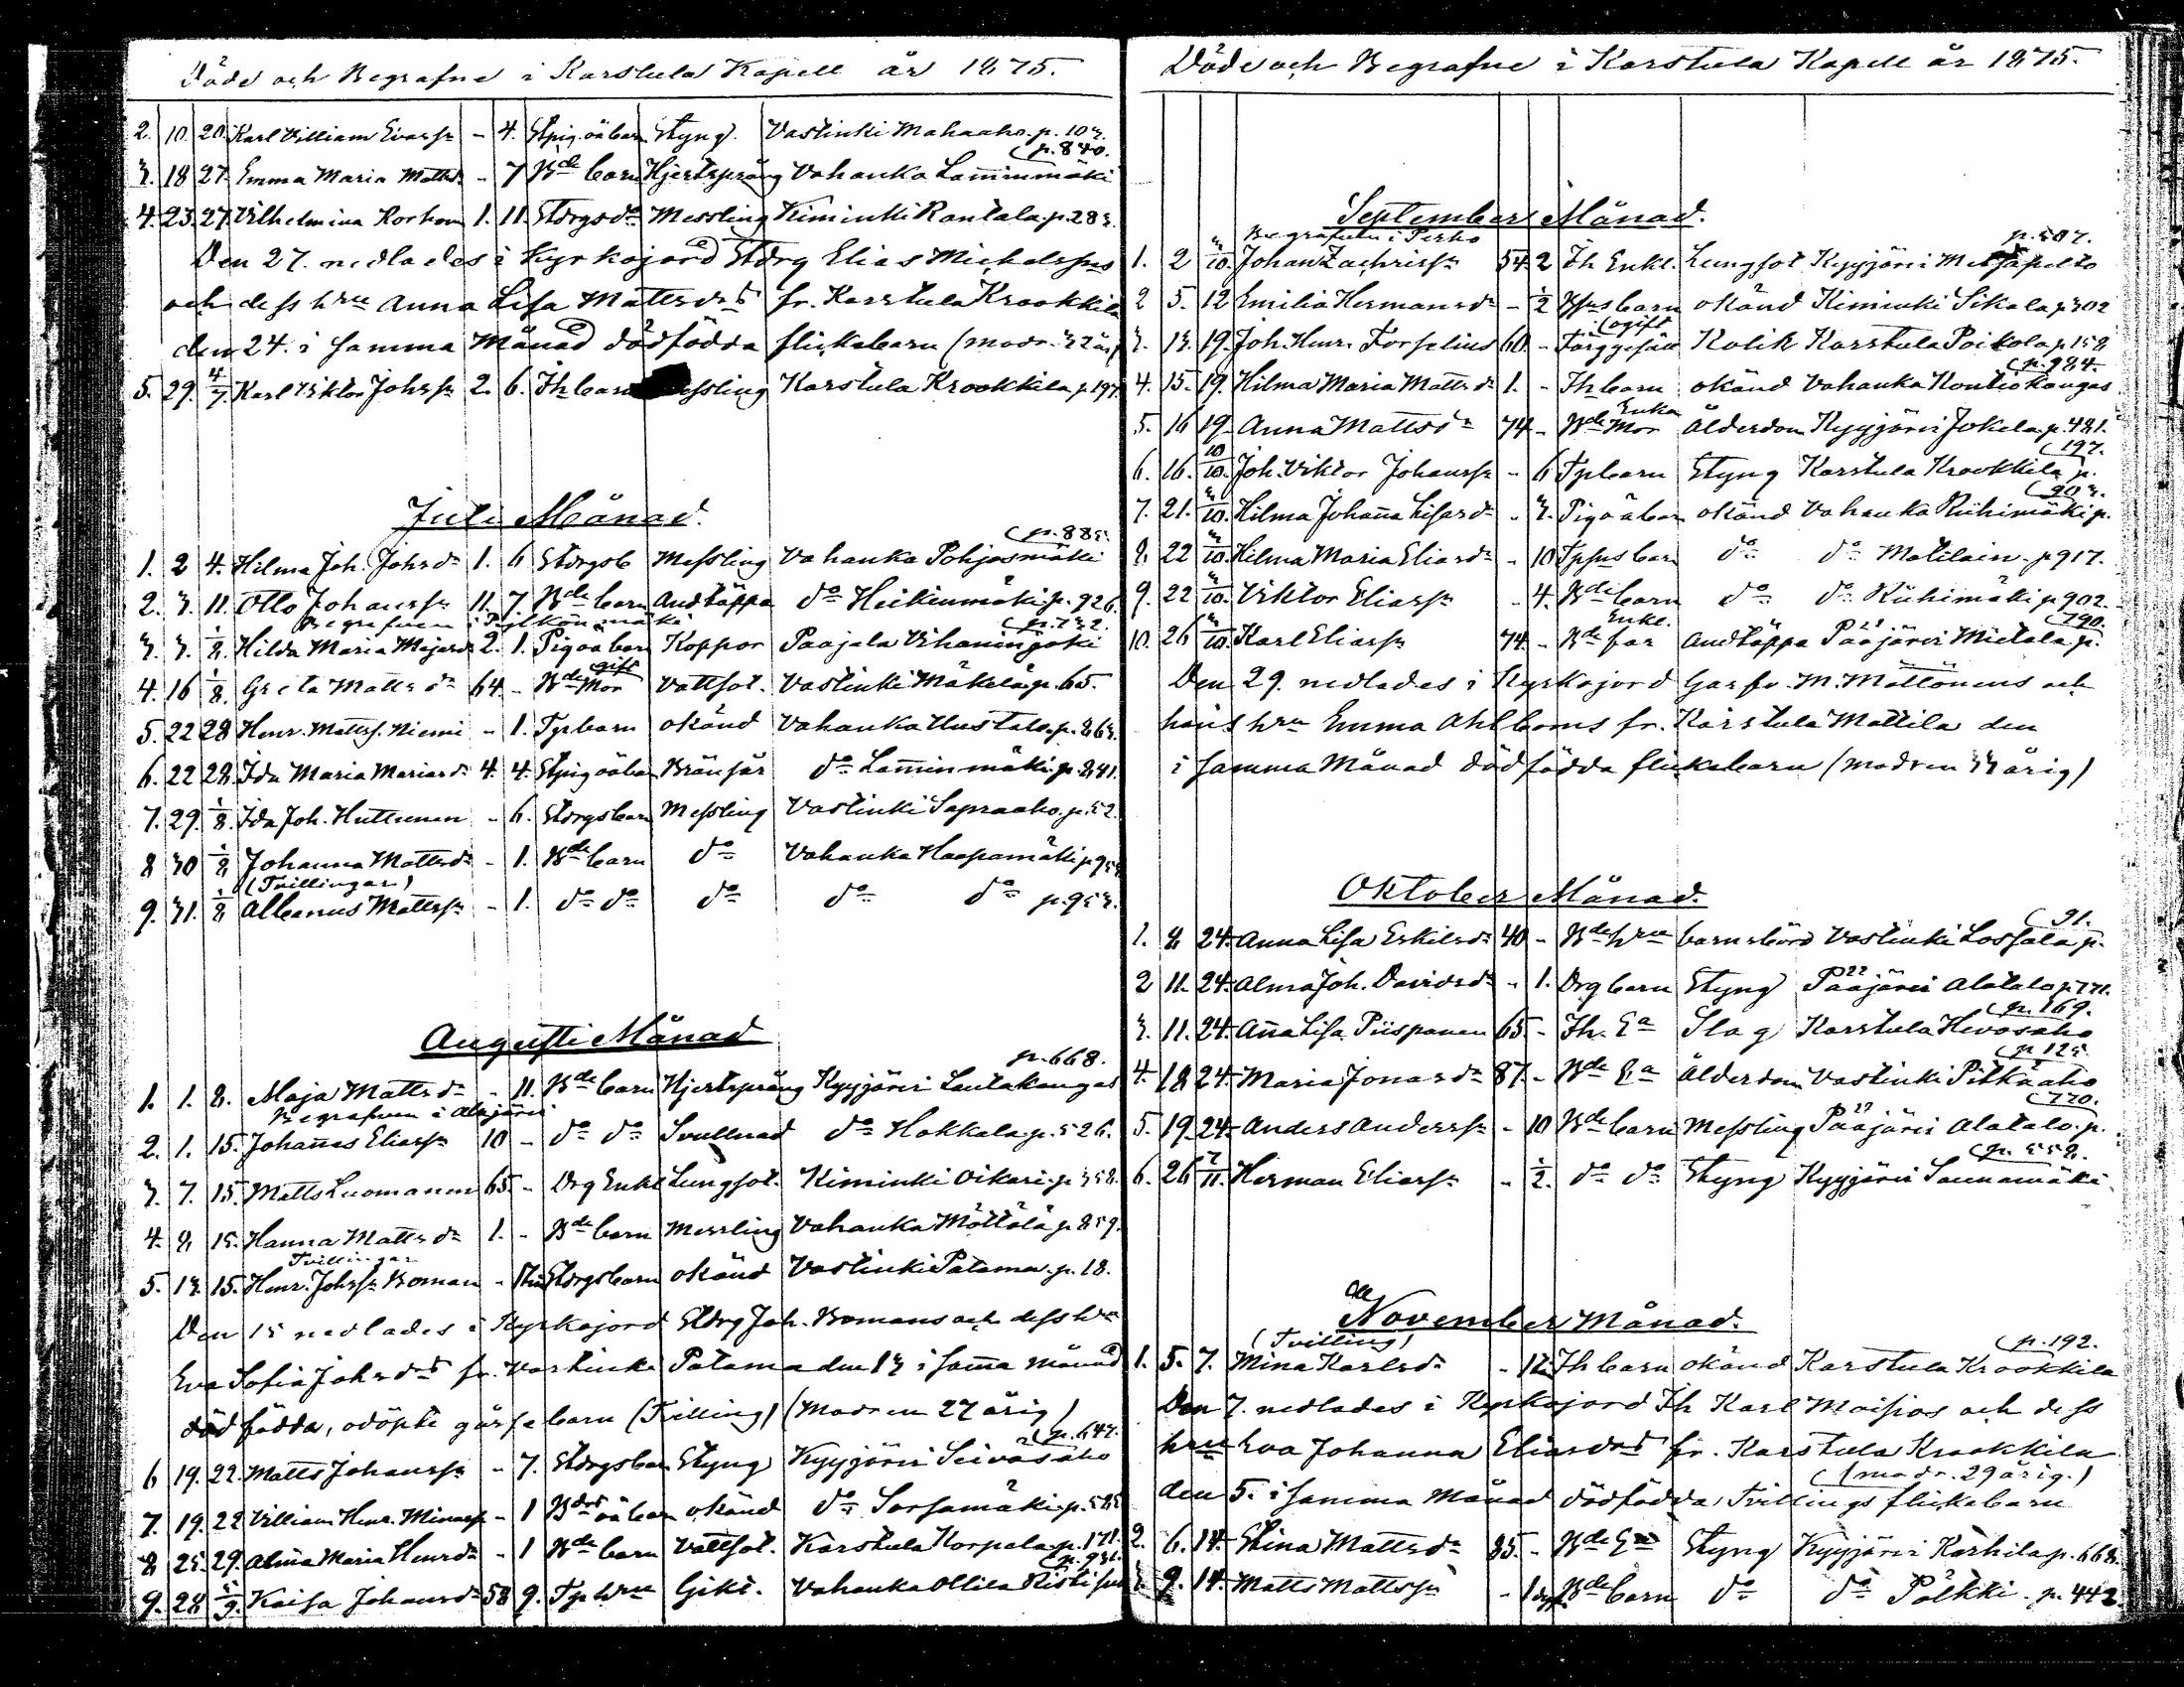 Döde och Begrafne i Karstula Kapell år 1875.
2. 10. 20. Karl Villiam Evass. - 4. Stpig. oä barn Styng. Vastinki Mahaaho. p. 103.
(p. 840.
3. 18 27. Emma Maria Mattsd. - 7 Bde barn Hjertsprång Vahanka Lamminmäki
4. 23. 27. Vilhelmina Korhon 1. 11. Stdrgs do Messling Kiminki Rantala. p. 283.
Den 27. nedlades i Kyrkojord Stdrg Elias Michelssons
och dess hru Anna Lisa Mattsdrs fr. Karstula Krookkila
den 24. i samma Månad dödfödda flickebarn (modr. 32 år)
5. 29. 4/7. Karl Viktor Johss. 2. 6. Ih barn Messling Karstula Krookkila p. 197.
Juli Månad.
(p. 883.
1. 2 4. Hilma Joh. Johsdr 1. 6 Stdrgsb Messling Vahanka Pohjosmäki
2. 3. 11. Otto Johanss. 11. 7. Bde barn Andtäppa do Heikinmäki p. 926.
Begrafven i Pylkönmäki (p. 732.
3. 3. 1/8. Hilda Maria Majasd. 2. 1. Pigoä barn Koppor Paajala Vihaninjoki
gift
4. 16 1/8. Greta Mattsdr 64. - Bde Mor Vattsot. Vastinki Mäkelä p. 65.
5. 22 28 Henr. Mattss. Niemi - 1. Tpr barn okänd Vahanka Uustalo. p. 863.
6. 22 28. Ida Maria Mariasd. 4. 4. Stpig oä barn Bränsår do Lamminmäki p. 841.
7. 29. 1/8. Ida Joh. Huttunen - 6. Stdrgs barn Messling Vastinki Sapraaho. p. 52.
8 30 1/8 Johanna Mattsdr - 1. Bde barn do Vahanka Haapamäki p. 953.
(Tvillingar)
9. 31. 1/8 Albanus Mattss. - 1. do do do do do p. 953.
Augusti Månad
p. 668.
1. 1. 8. Maja Mattsdr - 11. Bde barn Hjertsprång Kyyjärvi Lautakangas
Begrafven i Alajärvi
2. 1. 15. Johannes Eliass. 10 - do do Svullnad do Hokkala p. 526.
3. 7. 15. Matts Luomanen 65. - Drg Enkl Lungsot. Kiminki Oikari p. 358.
4. 8. 15. Hanna Mattsdr 1. - Bde barn Messling Vahanka Möttölä p. 859.
Tvillingar
5. 13. 15. Henr. Johss. Boman - Stdrgs barn okänd Vastinki Patama. p. 18.
Den 15 nedlades i Kyrkojord Stdrg Joh. Bomans och dess hru
Eva Sofia Johsdrs fr. Vastinki Patama den 13 i samma månad
dödfödda, odöpte gosse barn (Tvilling) (Modren 27 årig)
(p. 647.
6 19. 22. Matts Johanss. - 7. Stdrgs barn Styng Kyyjärvi Seiväsaho
7. 19. 22 Villiam Henr. Minass. - 1 Bdrs oä barn okänd do Sorsamäki p. 585
8 25. 29. Alma Maria Henrsdr - 1 Bde barn Vattsot. Karstula Korpala p. 171.
(p. 931.
9. 28 5/9. Kaisa Johansdr 58 9. Tp hru Gikt. Vahanka Ollila Ristisuo
Döde och Begrafne i Karstula Kapell år 1875.
September Månad.
Begrafven i Perho p. 507.
1. 2 3/10. Johan Zachriss. 54. 2 Ih Enkl. Lungsot Kyyjärvi Metsäpelto
2 5. 12 Emilia Hermansdr - 1/2 Bfus barn okänd Kiminki Sikala p. 302
(ogift
3. 13. 19. Joh. Henr. Forselius 60. - Färggesäll Kolik Karstula Poikola p. 158
(p. 984.
4. 15. 19. Hilma Maria Mattsdr 1. - Ih barn okänd Vahanka Kontiokangas
Enka
5. 16 19. Anna Mattsdr 74 - Bde Mor Ålderdom Kyyjärvi Jokela p. 481.
(197.
6. 16. 10/10. Joh. Viktor Johanss. - 6 Tpbarn Styng Karstula Krookkila p.
(903.
7. 21. 3/10. Hilma Johanna Lisasdr - 3. Pigoä barn okänd Vahanka Riihimäki p.
8. 22 3/10. Hilma Maria Eliasdr - 10 Tppus barn do do Matilain. p 917.
9. 22 3/10. Viktor Eliass. - 4. Bde barn do do Riihimäki p 902.
Enkl. (790.
10. 26 3/10. Karl Eliass. 74. - Bde far Andtäppa Pääjärvi Mietala p.
Den 29. nedlades i Kyrkojord Garfv. M. Möttönens och
hans hru Emma Ahlboms fr. Karstula Mattila den
i samma Månad dödfödda flickebarn (modren 33 årig)
Oktober Månad.
(91.
1. 8 24. Anna Lisa Eskilsdr 40 - Bde hru barnsbörd Vastinki Lossala p.
2 11. 24. Alma Joh. Davidsdr - 1. Drg barn Styng Pääjärvi Alatalo p. 771.
(p. 169.
3. 11. 24. Anna Lisa Piispanen 65 - Ih. Ea Slag Karstula Hevosaho
(p 125.
4. 18 24. Maria Jonasdr 87. - Bde Ea Ålderdom Vastinki Pitkäaho
(770.
5. 19. 24. Anders Anderss. - 10 Bde barn Messling Pääjärvi Alatalo. p.
(p. 558.
6. 26 7/11. Herman Eliass. - 1/2. do do Styng Kyyjärvi Saunamäki
November Månad.
(Tvilling) (p. 192.
1. 5. 7. Mina Karlsdr - Ih barn okänd Karstula Krookkila
Den 7. nedlades i Kyrkojord Ih Karl Moisios och dess
hru Eva Johanna Eliasdrs fr. Karstula Krookkila
(modr. 29 årig.)
den 5. i samma Månad dödfödda Tvillings flickebarn
2. 6. 14. Stina Mattsdr 85. - Bde Ea Styng Kyyjärvi Karhila p. 668.
3. 9. 14. Matts Mattss. - Bde barn do do Pölkki p. 442